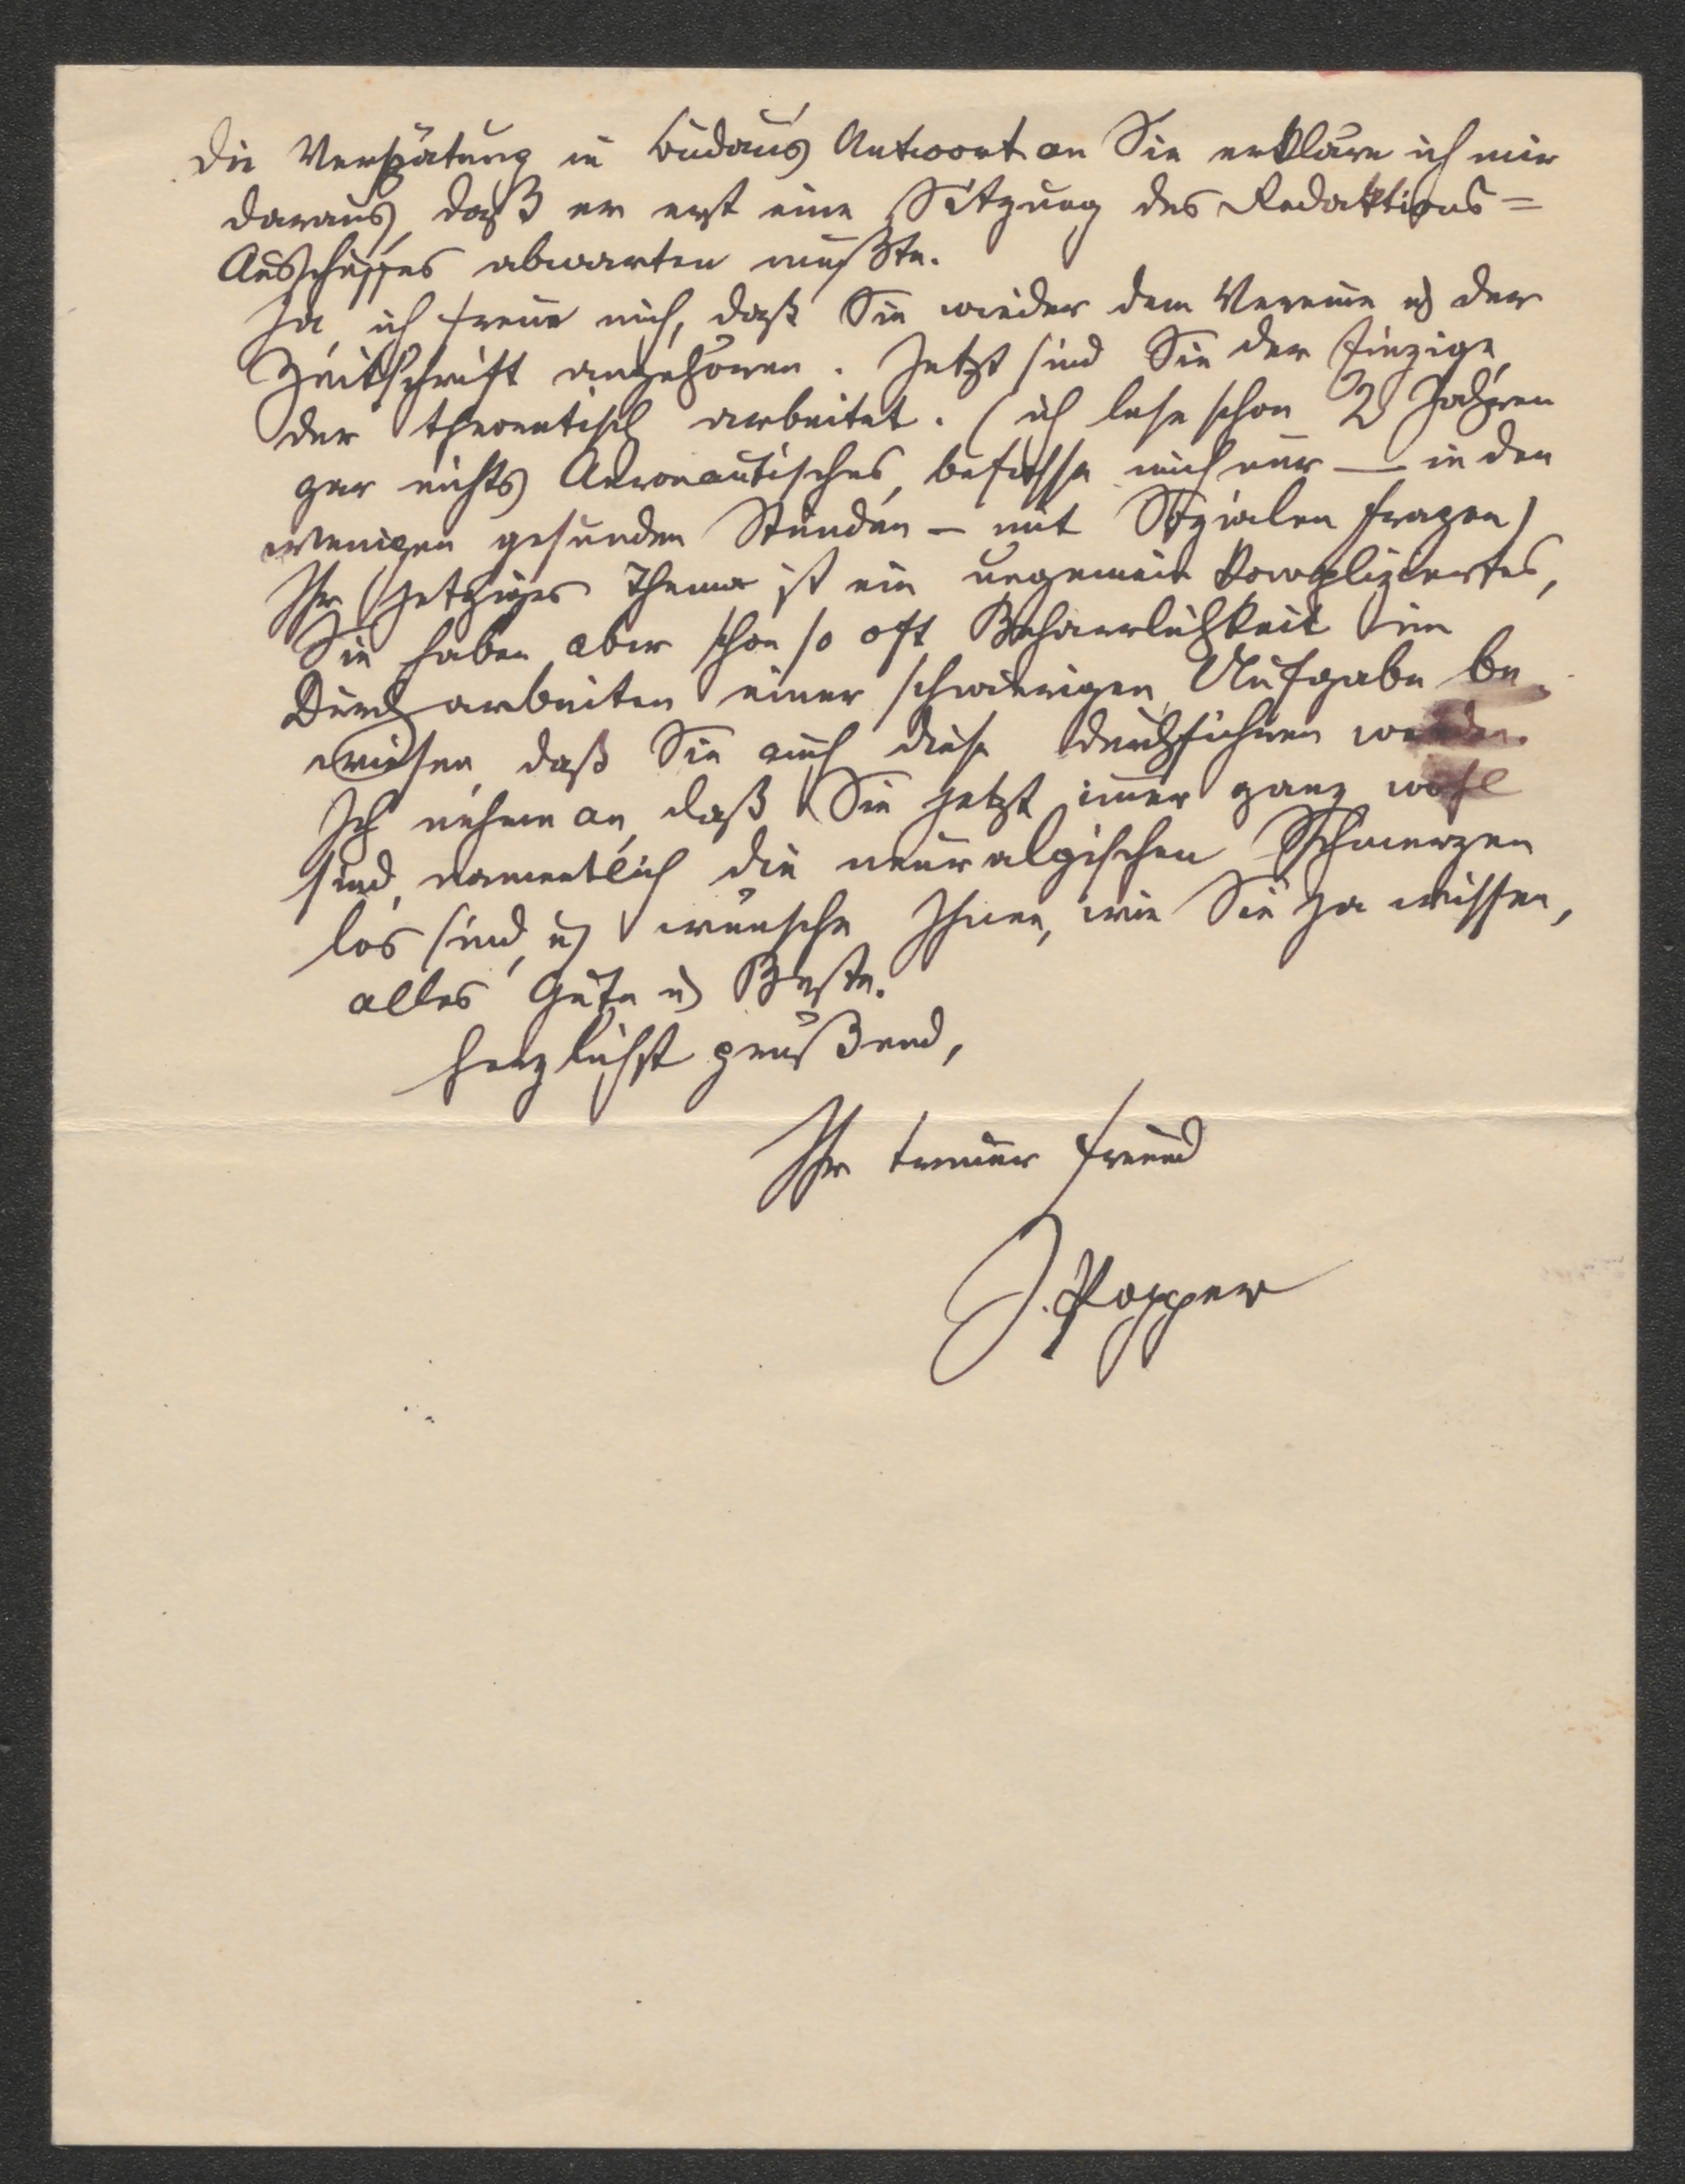 Die Verspätung in Budaus Antwort an Sie erkläre ich mir
daraus, daß er erst eine Sitzung des Redaktions=
Ausschusses abwarten mußte.
Ja, ich freue mich, daß Sie wieder dem Vereine u der
Zeitschrift angehören. Jetzt sind Sie der Einzige,
der theoretisch arbeitet. (ich lese schon 2 Jahren
gar nichts Aeronautisches, befasse mich nur — in den
wenigen gesunden Stunden — mit Sozialen Fragen)
Ihr jetziges Thema ist ein ungemein kompliziertes,
Sie haben aber schon so oft Beharrlichkeit im
Durcharbeiten einer schwierigen Aufgabe be-
wiesen, daß Sie auch diese durchführen werden.
Ich nehme an, daß Sie jetzt immer ganz wohl
sind, namentlich die neuralgischen Schmerzen
los sind, u wünsche Ihnen, wie Sie ja wissen,
alles Gute u Beste.
herzlichst grüßend,
Ihr treuer Freund
J. Popper